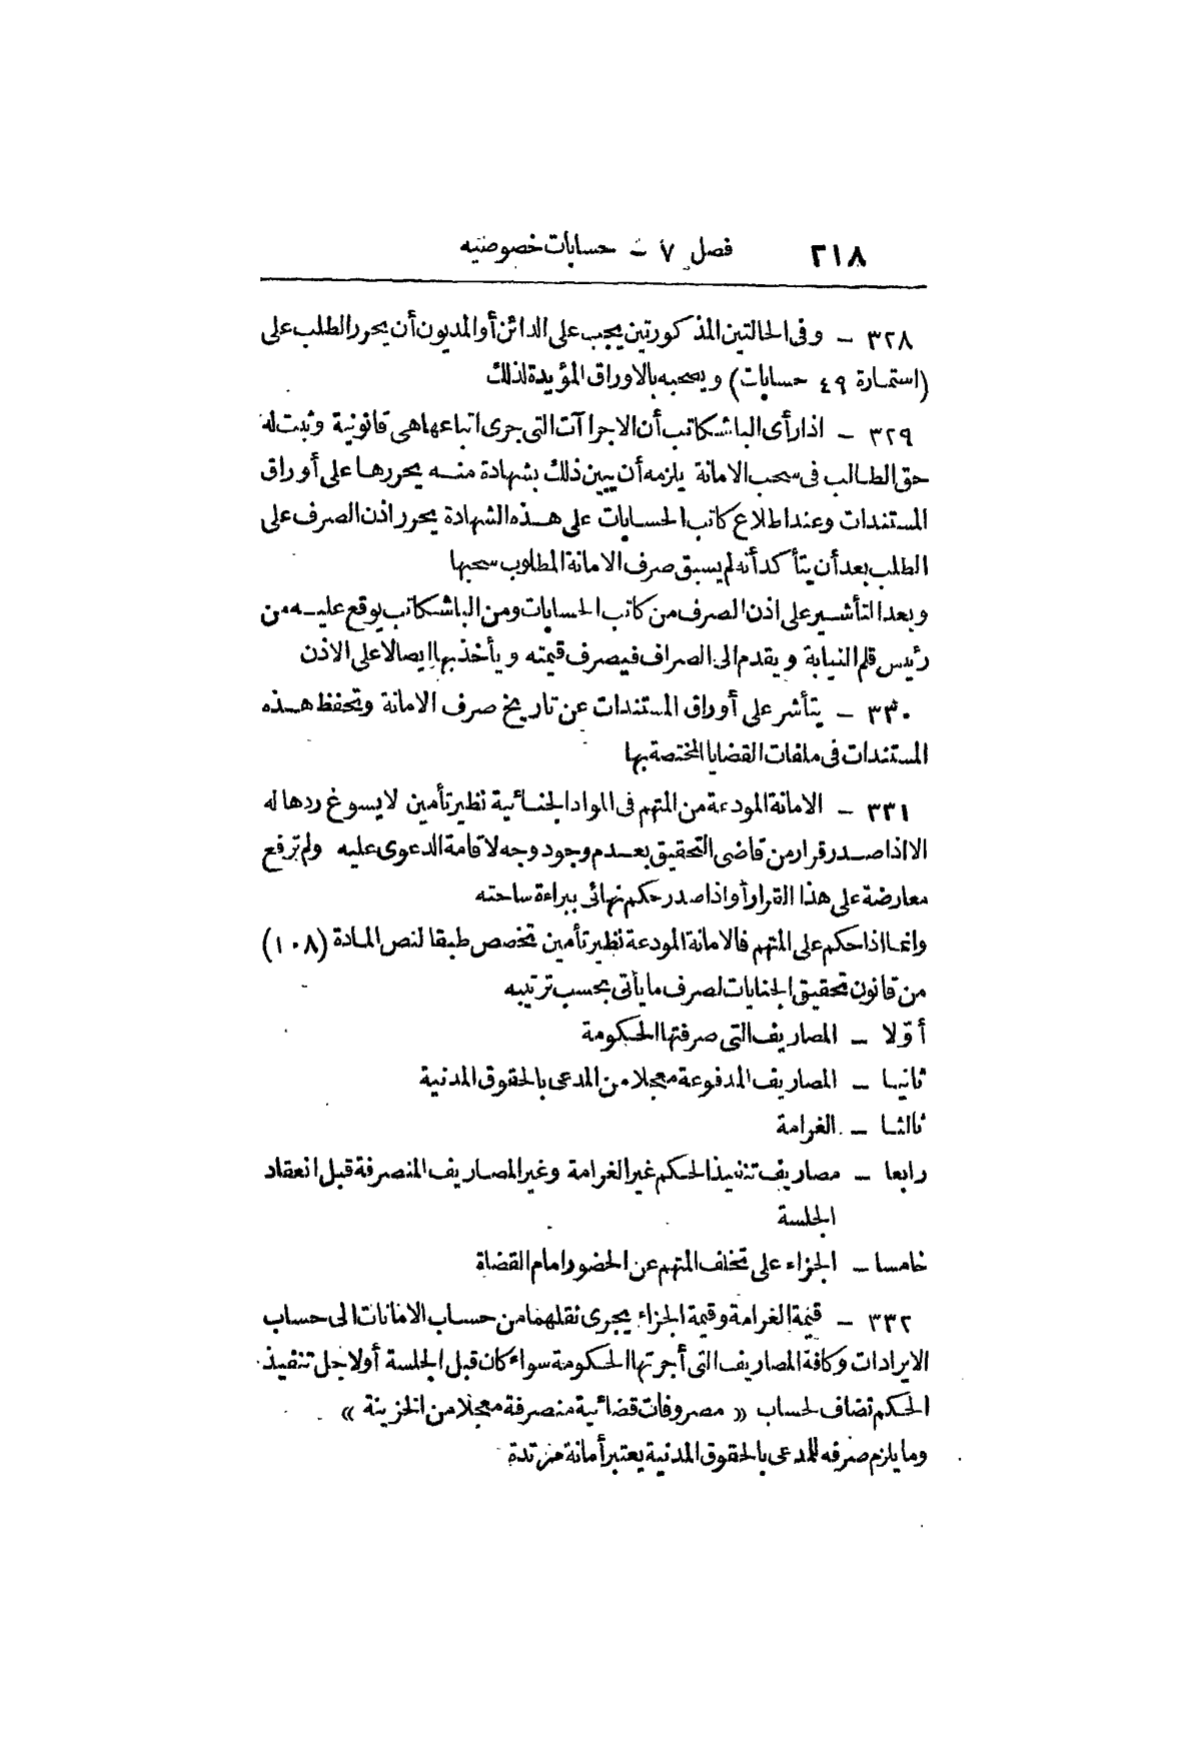 ٢١٨ فصل ٧ – حسابات خصوصيه
٣٢٨ – وفى الحالتين المذكورتين يجب على الدائن أو المديون أن يحرر الطلب على
(استمارة ٤٩ حسابات) ويصحبه بالاوراق المؤيدة لذلك
٣٢٩ – اذا رأى الباشكاتب أن الاجراآت التى جرى اتباعها هى قانونية وثبت له
حق الطالب فى سحب الامانة يلزمه أن يبين ذلك بشهادة منه يحررها على أوراق
المستندات وعند اطلاع كاتب الحسابات على هذه الشهادة يحرر اذن الصرف على
الطلب بعد أن يتأكد أنه لم يسبق صرف الامانة المطلوب سحبها
وبعد التأشير على اذن الصرف من كاتب الحسابات ومن الباشكاتب يوقع عليه من
رئيس قلم النيابة ويقدم الى الصراف فيصرف قيمته ويأخذ بها ايصالا على الاذن
٣٣٠ – يتأشر على أوراق المستندات عن تاريخ صرف الامانة وتحفظ هذه
المستندات فى ملفات القضايا المختصة بها
٣٣١ – الامانة المودعة من المتهم فى المواد الجنائية نظير تأمين لا يسوغ ردها له
الا اذا صدر قرار من قاضى التحقيق بعدم وجود وجه لاقامة الدعوى عليه ولم ترفع
معارضة على هذا القرار أو اذا صدر حكم نهائى ببراءة ساحته
وانما اذا حكم على المتهم فالامانة المودعة نظير تأمين تخصص طبقا لنص المادة (١٠٨)
من قانون تحقيق الجنايات لصرف ما يأتى بحسب ترتيبه
أوّلا – المصاريف التى صرفتها الحكومة
ثانيا – المصاريف المدفوعة معجلا من المدعى بالحقوق المدنية
ثالثا – الغرامة
رابعا – مصاريف تنفيذ الحكم غير الغرامة وغير المصاريف المنصرفة قبل انعقاد
الجلسة
خامسا – الجزاء على تخلف المتهم عن الحضور امام القضاة
٣٣٢ – قيمة الغرامة وقيمة الجزاء يجرى نقلهما من حساب الامانات الى حساب
الايرادات وكافة المصاريف التى أجرتها الحكومة سواء كان قبل الجلسة أو لاجل تنفيذ
الحكم تضاف لحساب « مصروفات قضائية منصرفة معجلا من الخزينة »
وما يلزم صرفه للمدعى بالحقوق المدنية يعتبر أمانة مرتدة